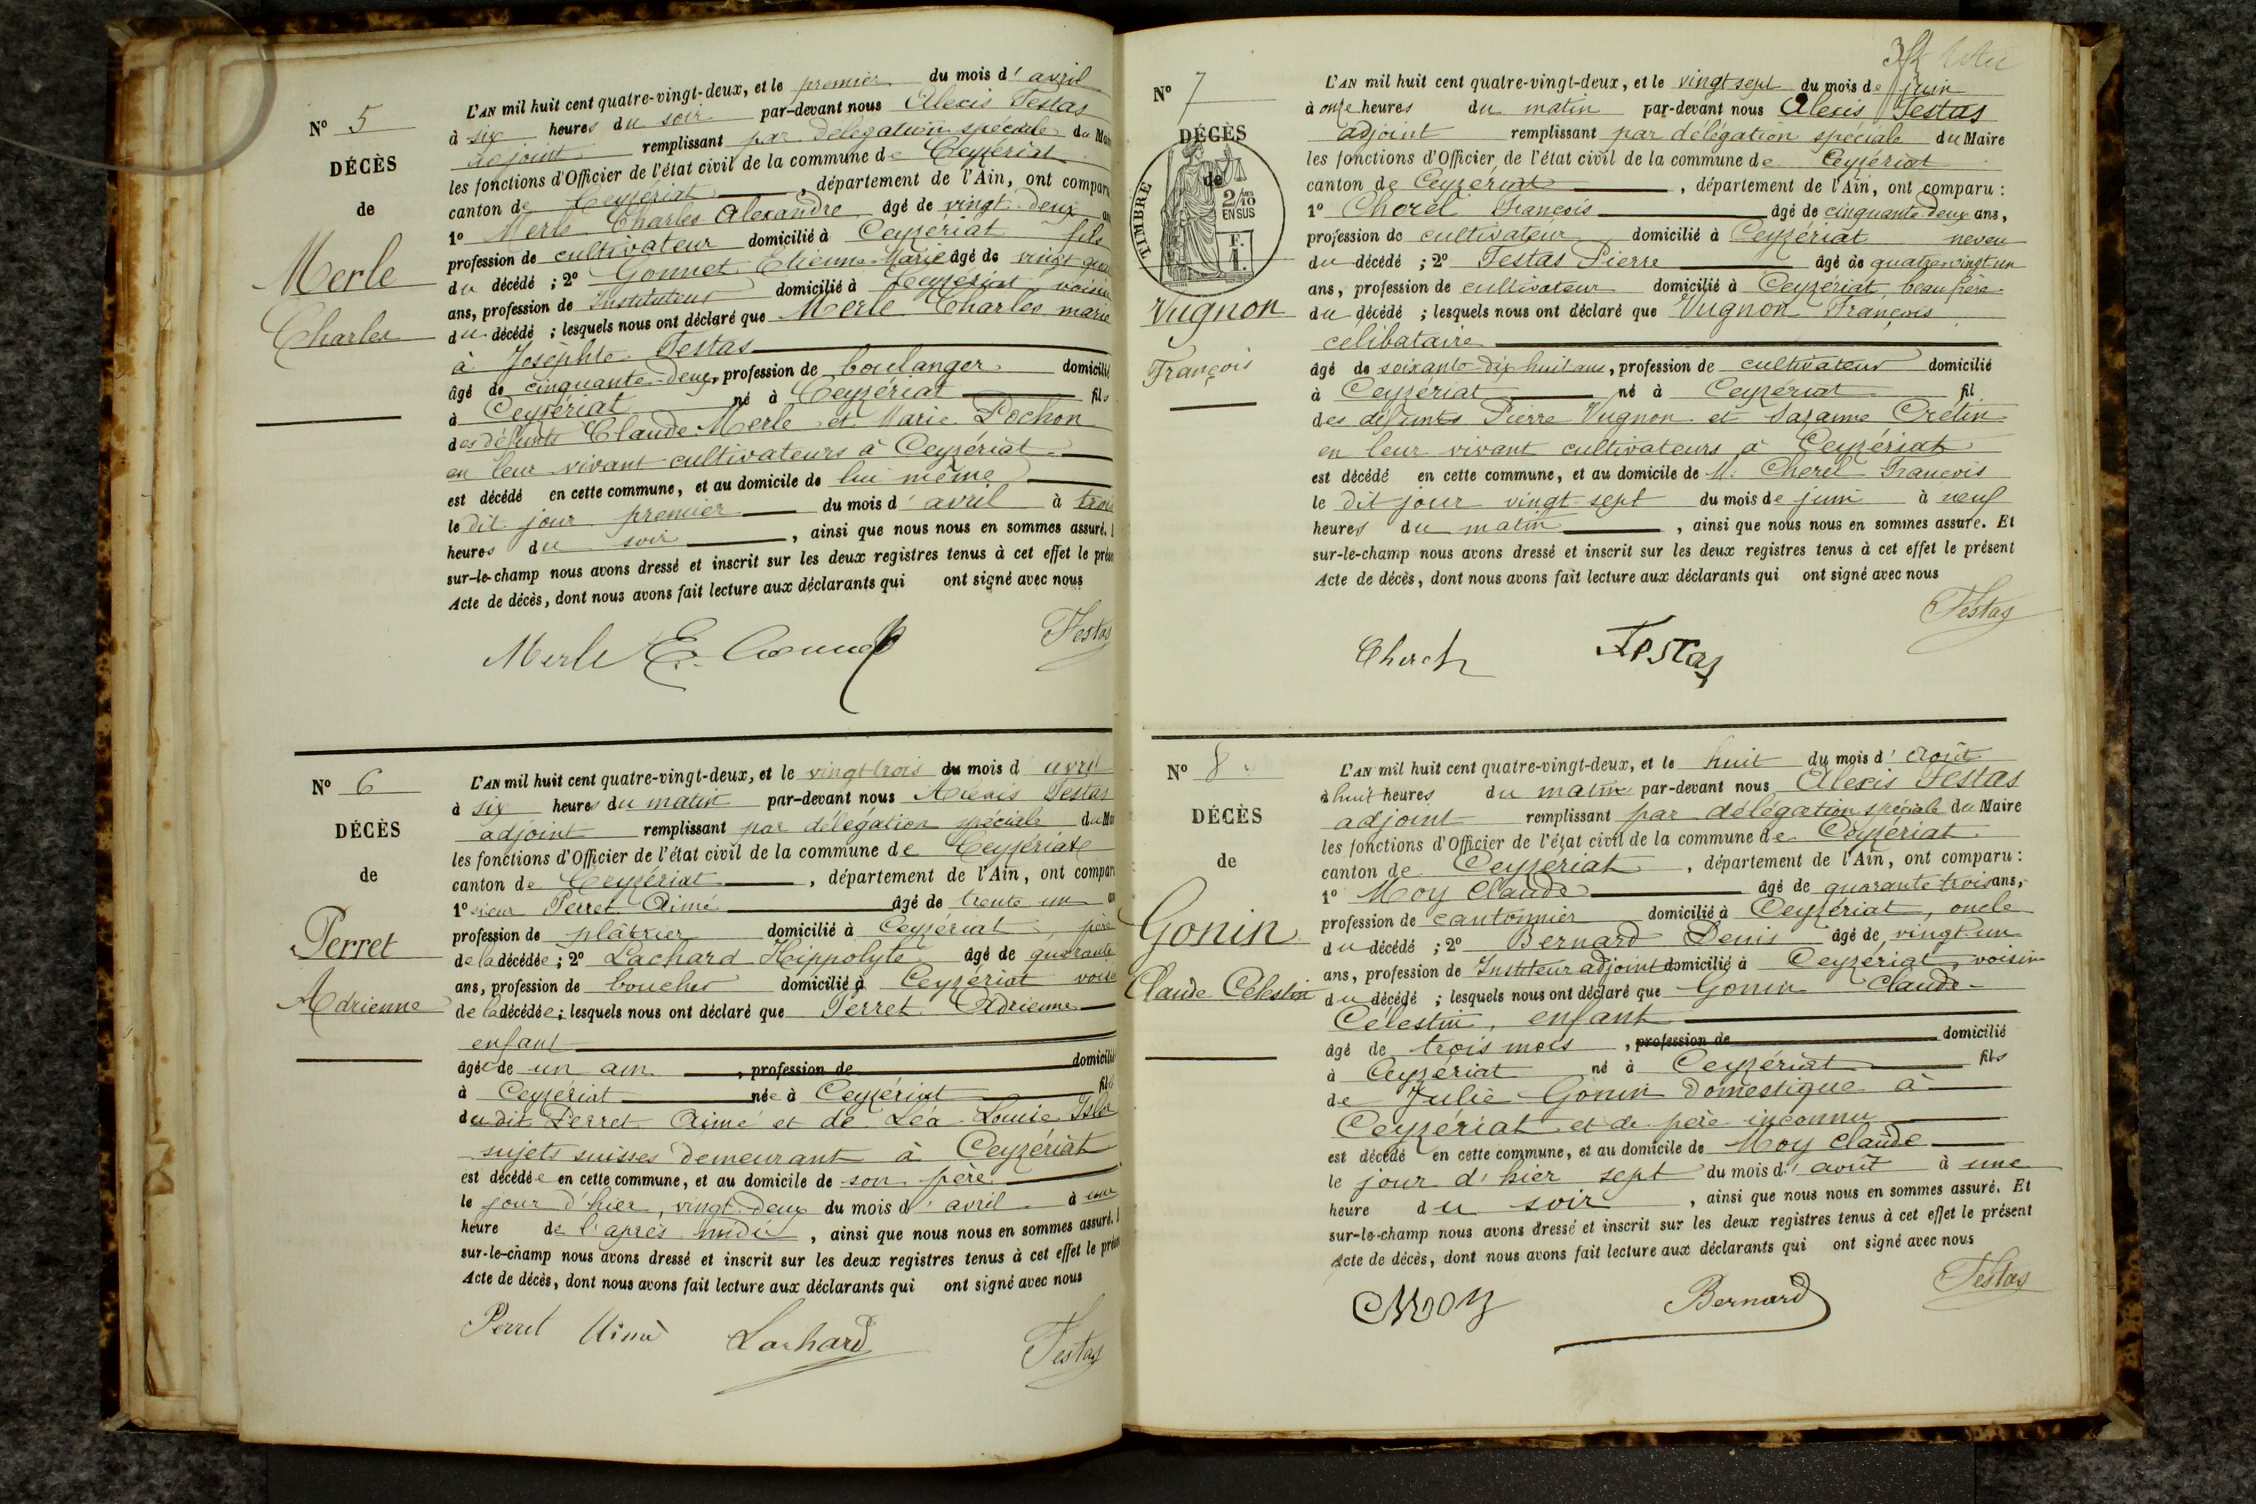 N° 5
DÉCÈS
de
Merle
Charles
L'AN mil huit cent quatre-vingt-deux, et le premier du mois d'avril
à six heures du soir par-devant nous Alexis Testas
adjoint remplissant par délégation spéciale du Mai
les fonctions d'Officier de l'état civil de la commune de Ceyzériat
canton de Ceyzériat, département de l'Ain, ont compar
1° Merle Charles Alexandre âgé de vingt-deux an
profession de cultivateur domicilié à Ceyzériat fils
du décédé ; 2° Gonnet Etienne Marie âgé de vingt qua
ans, profession de Instituteur domicilié à Ceyzériat voisin
du décédé ; lesquels nous ont déclaré que Merle Charles marié
à Josephte Testas
âgé de cinquante-deux, profession de boulanger domicilié
à Ceyzériat né à Ceyzériat fils
des défunts Claude Merle et Marie Pochon
en leur vivant cultivateurs à Ceyzériat
est décédé en cette commune, et au domicile de lui même
le dit jour premier du mois d'avril à trois
heures du soir, ainsi que nous nous en sommes assuré.
sur-le-champ nous avons dressé et inscrit sur les deux registres tenus à cet effet le prése
Acte de décès, dont nous avons fait lecture aux déclarants qui ont signé avec nous
Merle E. Gonnet Testas
N° 6
DÉCÈS
de
Perret
Adrienne
L'AN mil huit cent quatre-vingt-deux, et le vingt-trois du mois d'avril
à six heures du matin par-devant nous Alexis Testas
adjoint remplissant par délégation spéciale du Mai
les fonctions d'Officier de l'état civil de la commune de Ceyzériat
canton de Ceyzériat, département de l'Ain, ont compar
1° sieur Perret Aimé âgé de trente un an
profession de plâtrier domicilié à Ceyzériat, père
de la décédée ; 2° Lachard Hippolyte âgé de quarante
ans, profession de boucher domicilié à Ceyzériat voisi
de la décédée ; lesquels nous ont déclaré que Perret Adrienne
enfant
âgée de un an, profession de domicilié
à Ceyzériat née à Ceyzériat fille
du dit Perret Aimé et de Léa Louise
sujets suisses demeurant à Ceyzériat
est décédée en cette commune, et au domicile de son père
le jour d'hier, vingt-deux du mois d'avril à une
heure de l'après midi, ainsi que nous nous en sommes assuré.
sur-le-champ nous avons dressé et inscrit sur les deux registres tenus à cet effet le prése
Acte de décès, dont nous avons fait lecture aux déclarants qui ont signé avec nous
Perret Aimé Lachard Testas
N° 7
DÉCÈS
de
TIMBRE
2/10
EN SUS
F.
1.
Vugnon
François
L'AN mil huit cent quatre-vingt-deux, et le vingt sept du mois de juin
à onze heures du matin par-devant nous Alexis Testas
adjoint remplissant par délégation spéciale du Maire
les fonctions d'Officier de l'état civil de la commune de Ceyzériat
canton de Ceyzériat, département de l'Ain, ont comparu :
1° Cherel François âgé de cinquante-deux ans,
profession de cultivateur domicilié à Ceyzériat neveu
du décédé ; 2° Testas Pierre âgé de quatre-vingt un
ans, profession de cultivateur domicilié à Ceyzériat, beau frère
du décédé ; lesquels nous ont déclaré que Vugnon François
célibataire
âgé de soixante-dix huit ans, profession de cultivateur domicilié
à Ceyzériat né à Ceyzériat fil
des défunts Pierre Vugnon et Sazanne Crétin
en leur vivant cultivateurs à Ceyzériat
est décédé en cette commune, et au domicile de M. Cherel François
le dit jour vingt-sept du mois de juin à neuf
heures du matin, ainsi que nous nous en sommes assuré. Et
sur-le-champ nous avons dressé et inscrit sur les deux registres tenus à cet effet le présent
Acte de décès, dont nous avons fait lecture aux déclarants qui ont signé avec nous
Testas
Cherel Testas
N° 8
DÉCÈS
de
Gonin
Claude Célestin
L'AN mil huit cent quatre-vingt-deux, et le huit du mois d'Août
à huit heures du matin par-devant nous Alexis Testas
adjoint remplissant par délégation spéciale du Maire
les fonctions d'Officier de l'état civil de la commune de Ceyzériat
canton de Ceyzériat, département de l'Ain, ont comparu :
1° Moy Claude âgé de quarante trois ans,
profession de cantonnier domicilié à Ceyzériat, oncle
du décédé ; 2° Bernard Denis âgé de vingt-un
ans, profession de Instituteur adjoint domicilié à Ceyzériat, voisin
du décédé ; lesquels nous ont déclaré que Gonin Claude
Célestin, enfant
âgé de trois mois, profession de domicilié
à Ceyzériat né à Ceyzériat fils
de Julie Gonin domestique à
Ceyzériat et de père inconnu
est décédé en cette commune, et au domicile de Moy Claude
le jour d'hier sept du mois d'août à une
heure du soir, ainsi que nous nous en sommes assuré. Et
sur-le-champ nous avons dressé et inscrit sur les deux registres tenus à cet effet le présent
Acte de décès, dont nous avons fait lecture aux déclarants qui ont signé avec nous
CMoy Bernard Testas